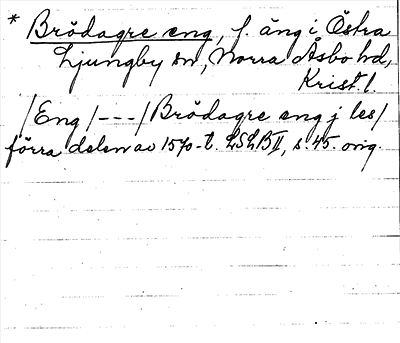 * Brödagre eng, f. äng i Östra
Ljungby sn, Norra Åsbo hd,
Krist. l.
/Eng/---/Brödagre eng j les/
förra delen av 1570-t. LSLB II, s. 45. orig.